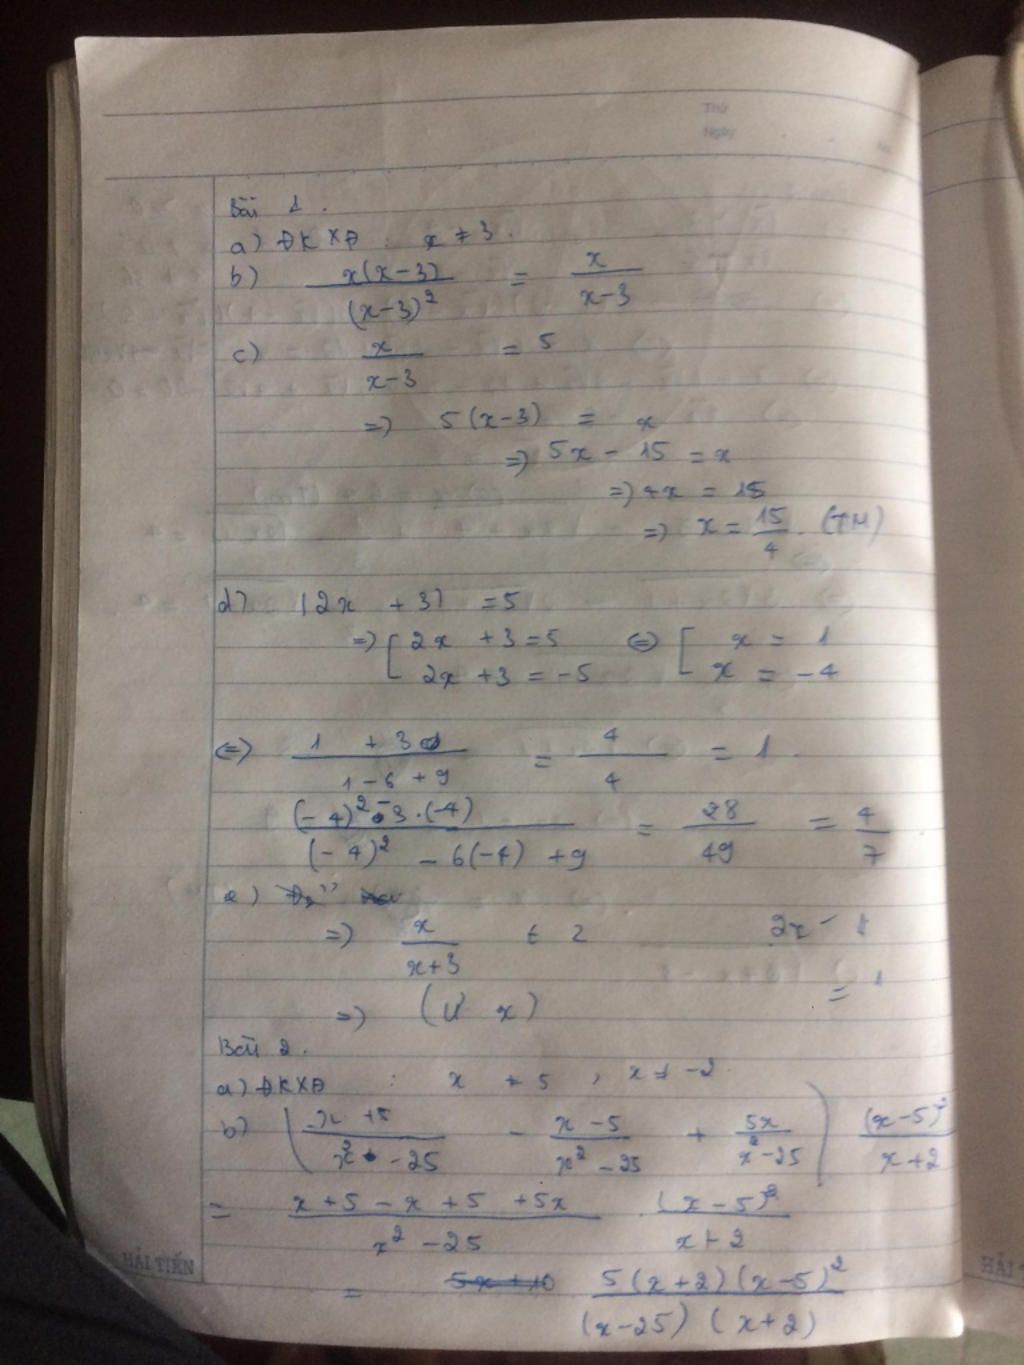 Thứ
Ngày
Bài 1.
a) ĐKXĐ : x ≠ 3.
b) x(x-3) / (x-3)² = x / x-3
c) x / x-3 = 5
=> 5(x-3) = x
=> 5x - 15 = x
=> 4x = 15
=> x = 15/4. (TM)
d) |2x + 3| = 5
=> [ 2x + 3 = 5 <=> [ x = 1
2x + 3 = -5 x = -4
<=> 1 + 3 / 1 - 6 + 9 = 4/4 = 1
(-4)² - 3.(-4) / (-4)² - 6(-4) + 9 = 28/49 = 4/7
e)
=> x / x+3 ∈ Z 2x - 1
= 1
=> ( x)
Bài 2.
a) ĐKXĐ : x ≠ 5 , x ≠ -2
b) ( x + 5 / x² - 25 - x - 5 / x² - 25 + 5x / x² - 25 ) (x-5)² / x+2
= x + 5 - x + 5 + 5x / x² - 25 (x-5)² / x+2
= 5x + 10 5(x+2)(x-5)² / (x-25)(x+2)
HẢI TIẾN
HẢI